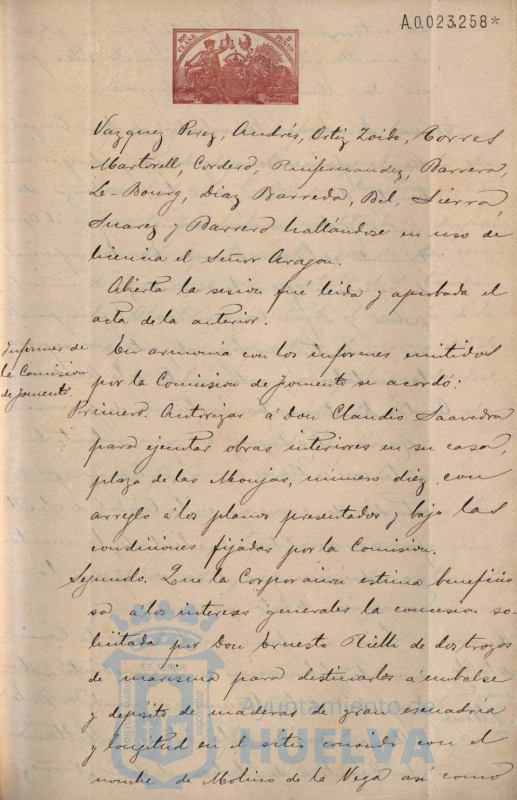 A.0.023.258*
10ª CLASE
2 PESTAS
Vazquez Perez, Andrés, Ortiz Zoido, Torres
Martorell, Cordero, Ruifernandez, Barrera,
Le-Bourg, Diaz Barreda, Bel, Sierra,
Suarez y Barrero hallándose en uso de
licencia el Señor Aragon.
Abierta la sesion fué leida y aprobada el
acta de la anterior.
Informes de
la Comision
de fomento
En armonía con los informes emitidos
por la Comision de fomento se acordó:
Primero. Autorizar á Don Claudio Saavedra
para ejecutar obras interiores en su casa,
plaza de las Monjas, número diez, con
arreglo á los planos presentados y bajo las
condiciones fijadas por la Comision.
Segundo. Que la Corporacion estima beneficio
sa á los intereses generales la concesion so-
licitada por Don Ernesto de dos trozos
de marisma para destinarlos á embalse
y depósito de maderas de gran escuadría
y longitud en el sitio conocido con el
nombre de Molino de la Vega así como
Ayuntamiento de
HUELVA